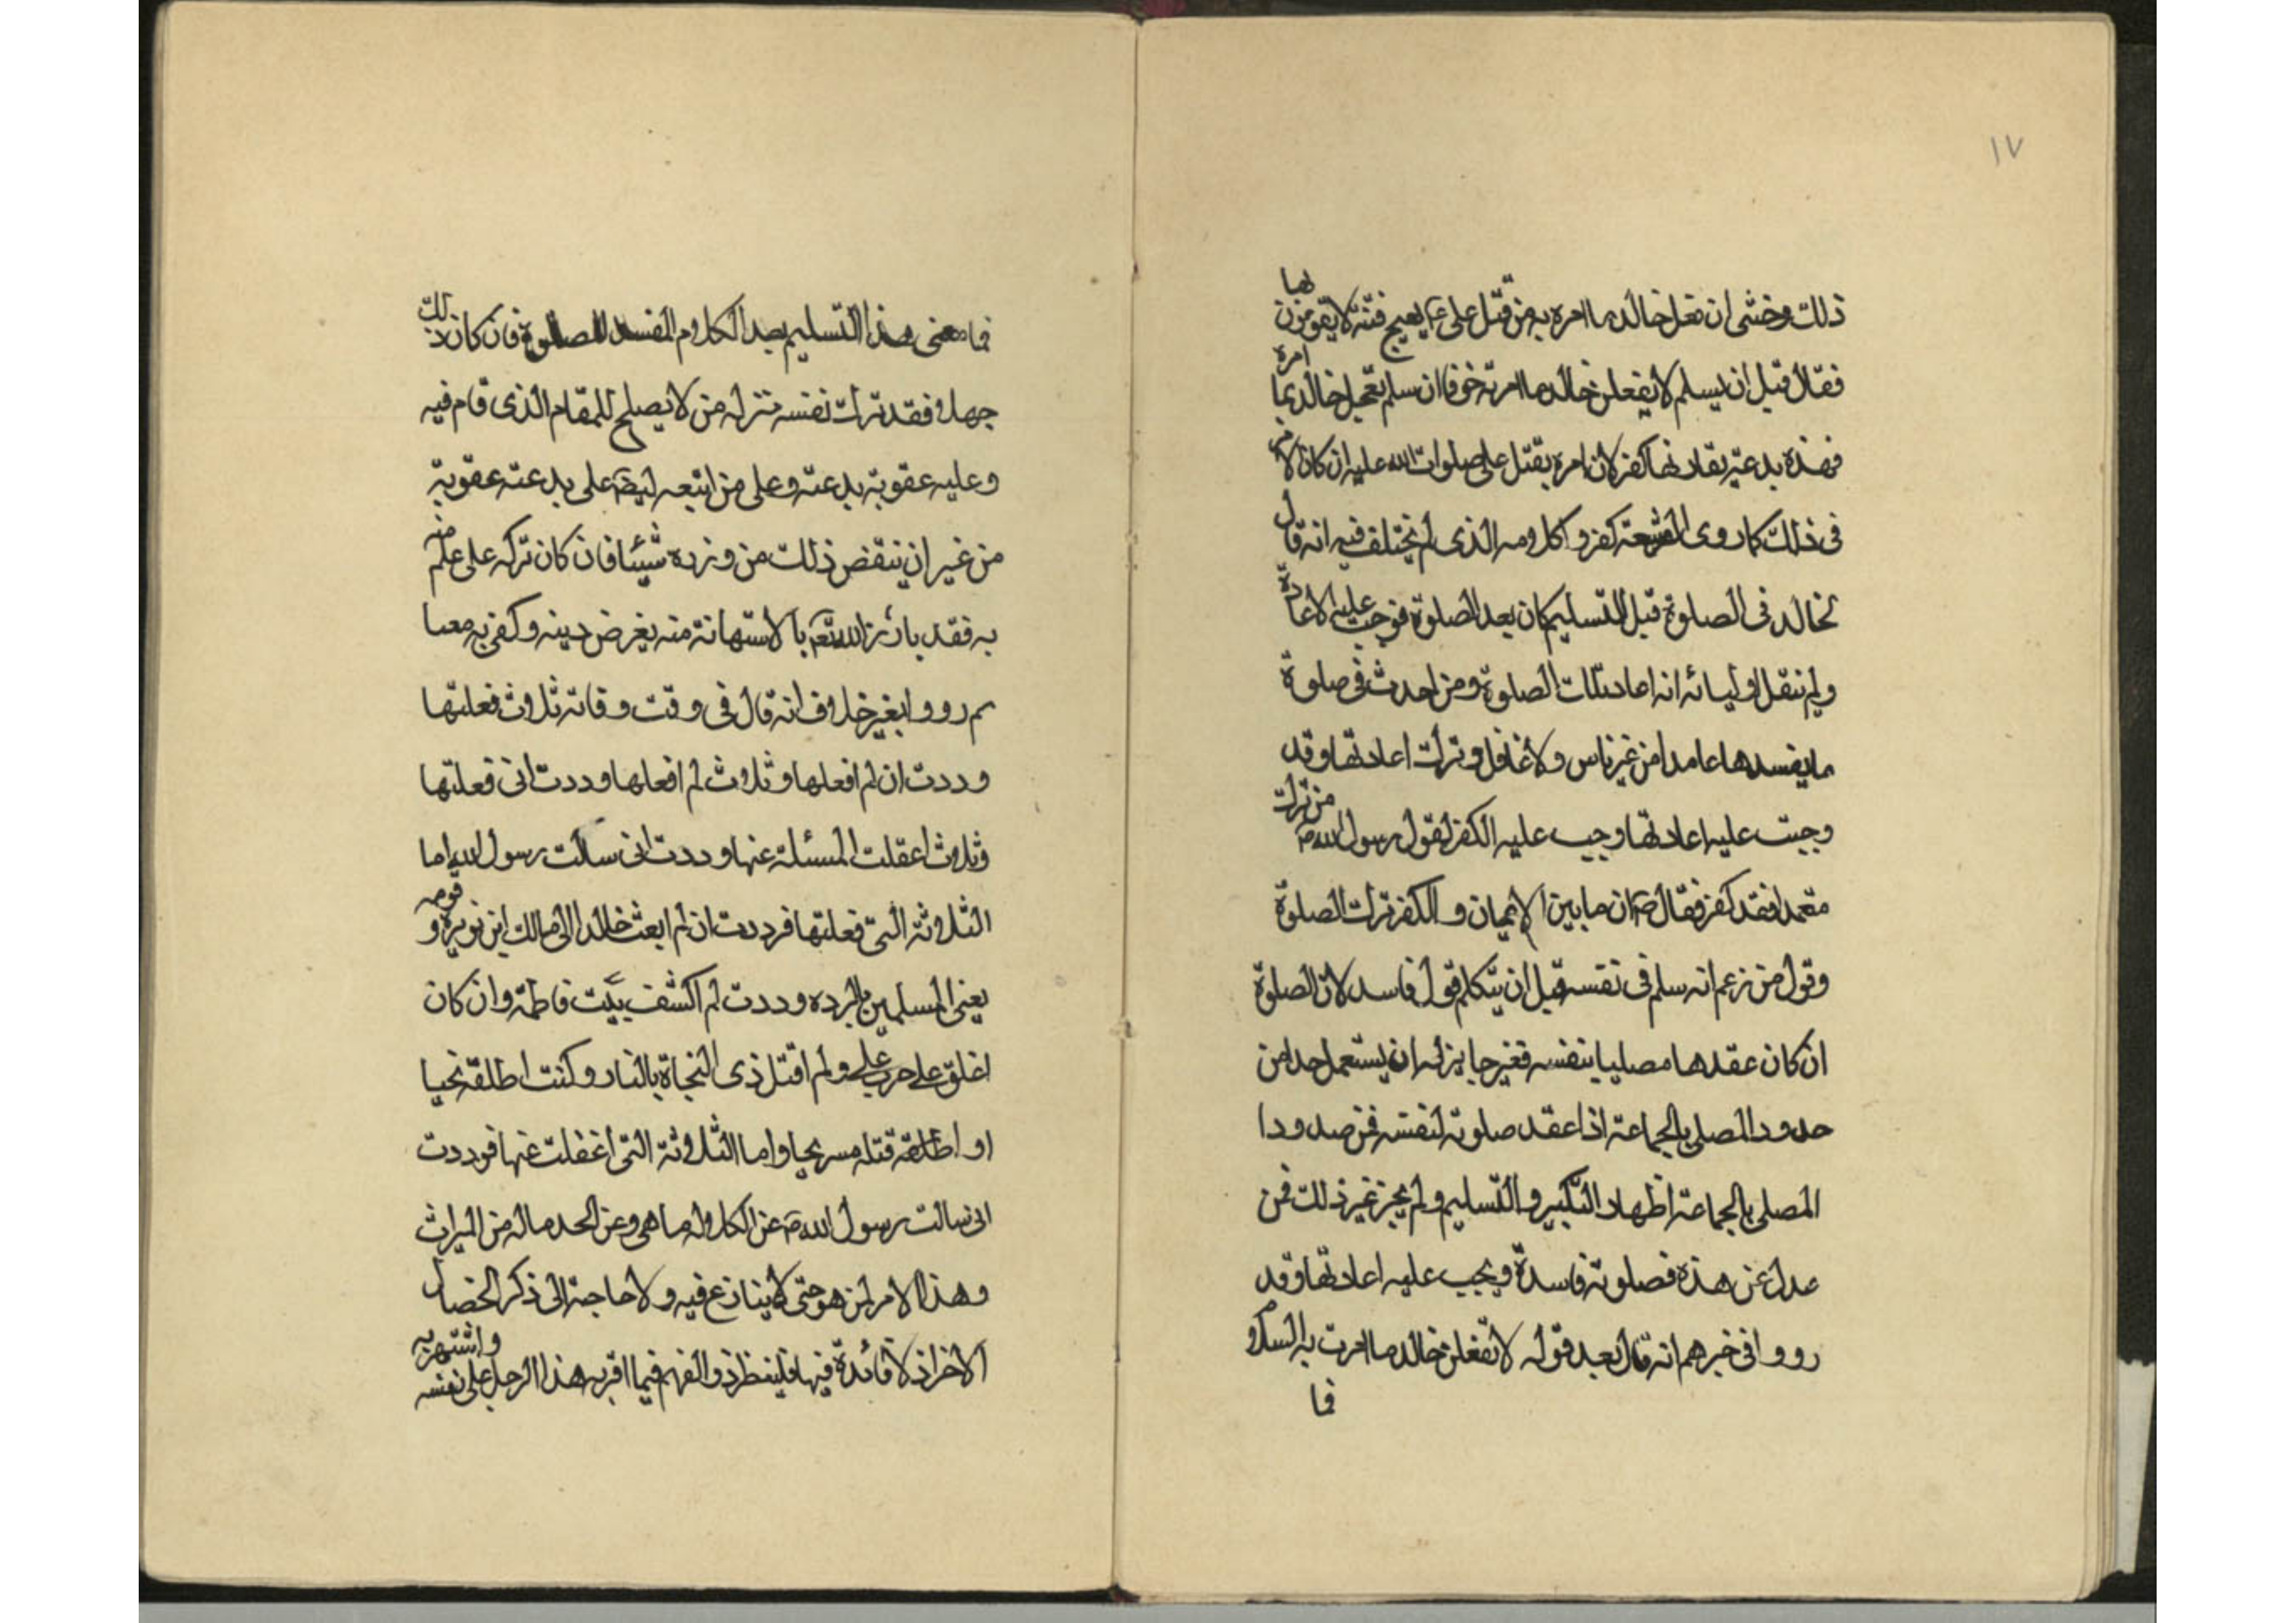 ١٧
ذلك وخشى ان فعل خالد ما امره به من قتل على ع يهيج فتنة لا يقومون لها
فقال قبل ان يسلم لا يفعلن خالد ما امرته خوفا ان سلم تعجل خالد بما امره
فهذه بدعة يقارنها كفر لان امره بقتل على صلوات الله عليه ان كان لا
فى ذلك كما روى الشيعة كفر وكلامه الذى لم يختلف فيه انه قال
لخالد فى الصلوة قبل التسليم كان بعد الصلوة فوجبت عليه الاعادة
ولم ينقل اوليائه انه اعاد تلك الصلوة ومن احدث فى صلوة
ما يفسدها عامدا من غير ناس ولا غافل وترك اعادتها وقد
وجبت عليه اعادتها وجب عليه الكفر لقول رسول الله ص من ترك
متعمدا فقد كفر فقال ص ان ما بين الايمان والكفر ترك الصلوة
وقول من زعم انه سلم فى نفسه قبل ان يتكلم قول فاسد لان الصلوة
ان كان عقدها مصليا بنفسه فغير جايز له ان يستعمل حدا من
حدود المصلى بالجماعة اذا عقد صلوته لنفسه فمن حدود
المصلى بالجماعة اظهار التكبير والتسليم ولم يجز غير ذلك فمن
عدل عن هذه فصلوته فاسدة ويجب عليه اعادتها وقد
رووا فى خبرهم انه قال بعد قوله لا تفعلن خالد ما امرت به السلام
فما
فما معنى هذا التسليم بعد الكلام المفسد للصلوة فان كان ذلك
جهلا فقد ترك نفسه منزلة من لا يصلح للمقام الذى قام فيه
وعليه عقوبة بدعته وعلى من اتبعه ايضا على بدعته عقوبة
من غير ان ينقض ذلك من وزره شيئا فان كان تركه على علم منه
به فقد بارز الله تعم بالاستهانة منه بفرض دينه وكفى به معسا
ثم رووا بغير خلاف انه قال فى وقت وفاته ثلاث فعلتها
وددت ان لم افعلها وثلاث لم افعلها وددت انى فعلتها
وثلاث اغفلت المسئلة عنها وددت انى سالت رسول الله اما
الثلاثة التى فعلتها فرددت ان لم ابعث خالدا الى مالك ابن نويرة و قومه
يعنى المسلمين بالرده وددت لم اكشف بيت فاطمة وان كان
اغلق على حرب على ولم اقتل ذى النجاة بالنار وكنت اطلقه نحيا
او اطلقه قتله سريحا واما الثلاثة التى اغفلت عنها فوددت
انى سالت رسول الله ص عن الكلاله ما هى وعن الجد ماله من الميراث
وهذا الامر لمن هو حتى لا ينازع فيه ولا حاجة الى ذكر الخصال
الاخر اذ لا فائدة فيها فلينظر ذو الفهم فيما اقر به هذا الرجل على نفسه واشتهر به